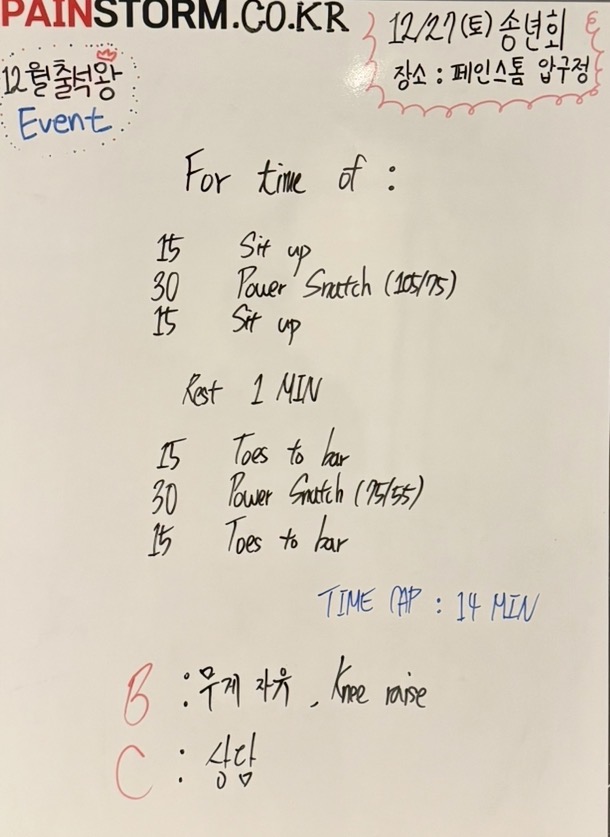 PAINSTORM.CO.KR
12/27(토) 송년회
장소 : 페인스톰 압구정
12월 출석왕
Event
For time of :
15 Sit up
30 Power Snatch (105/75)
15 Sit up
Rest 1 MIN
15 Toes to bar
30 Power Snatch (75/55)
15 Toes to bar
TIME CAP : 14 MIN
B : 무게 자유, Knee raise
C : 상담